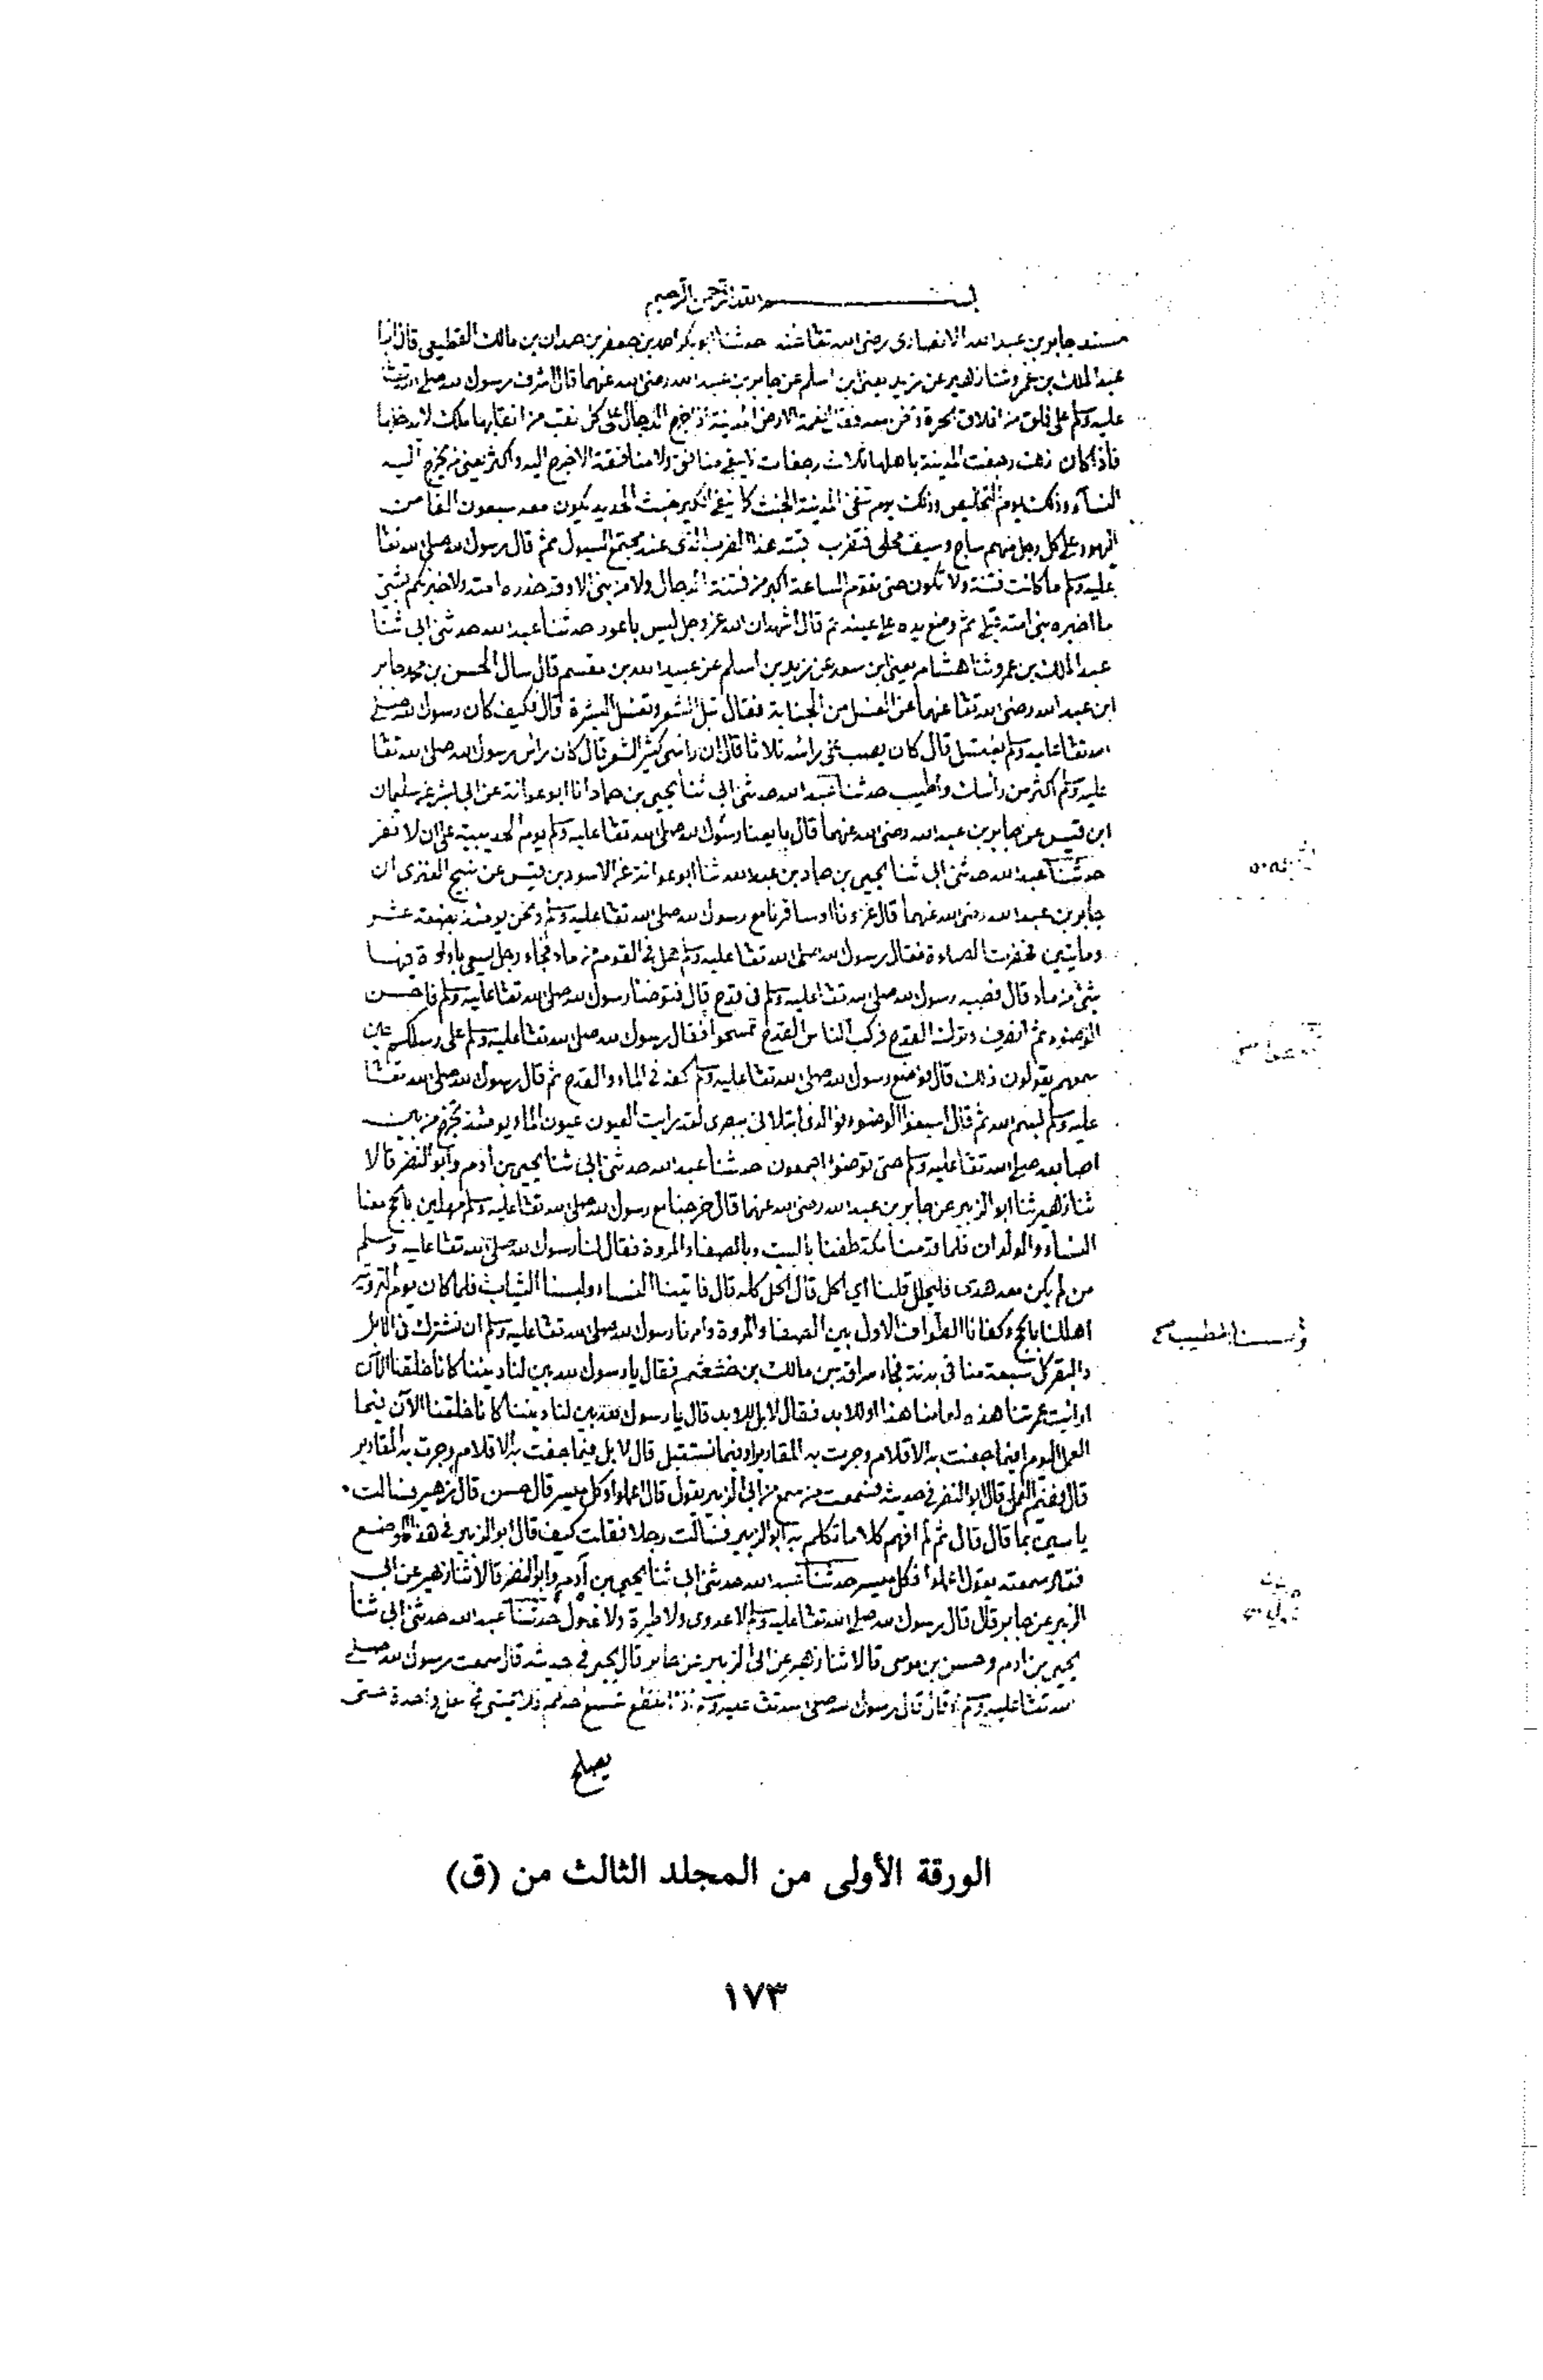 بسم الله الرحمن الرحيم
مسند جابر بن عبد الله الانصارى رضى الله تعا عنه حدثنا ابو بكر احمد بن جعفر بن حمدان بن مالك القطيعى قال
عبد الملك بن عمرو ثنا زهير عن زيد يعنى ابن اسلم عن جابر بن عبد الله رضى الله عنهما قال اشرف رسول الله صلى
عليه وسلم على فلق من افلاق الحرة ونحن معه فقال نعمة الارض المدينة اذا خرج الدجال على كل نقب من انقابها ملك لا يدخلها
فاذا كان رجفت المدينة باهلها ثلاث رجفات لا يبقى منافق ولا منافقة الا خرج اليه واكثر يعنى من يخرج اليه
النساء وذلك يوم التخليص وذلك يوم تنفى المدينة الخبث كما ينفى الكير خبث الحديد يكون معه سبعون الفا من
اليهود على كل رجل منهم ساج وسيف محلى فتضرب هذا الضرب الذى عند مجتمع السيول ثم قال رسول الله صلى الله تعا
عليه وسلم ما كانت فتنة ولا تكون حتى تقوم الساعة اكبر من فتنة الدجال ولا من نبى الا وقد حذره امته ولاخبرنكم بشئ
ما اخبره نبى امته قبلى ثم وضع يده على عينه ثم قال اشهد ان الله عز وجل ليس باعور حدثنا عبد الله حدثنى ابى ثنا
عبد الملك بن عمرو ثنا هشام يعنى ابن سعد عن زيد بن اسلم عن عبيد الله بن مقسم قال سال الحسن بن محمد جابر
ابن عبد الله رضى الله تعا عنهما عن الغسل من الجنابة فقال تبل الشعر وتغسل البشرة قال فكيف كان رسول الله صلى
الله تعا عليه وسلم يغتسل قال كان يصب على راسه ثلاثا قال ان راسى كثير الشعر قال كان راس رسول الله صلى الله تعا
عليه وسلم اكثر من راسك واطيب حدثنا عبد الله حدثنى ابى ثنا يحيى بن حماد انا ابو عوانة عن ابى بشر عن سليمان
ابن قيس عن جابر بن عبد الله رضى الله عنهما قال بايعنا رسول الله صلى الله تعا عليه وسلم يوم الحديبية على ان لا نفر
حدثنا عبد الله حدثنى ابى ثنا يحيى بن حماد بن عبد الله ثنا ابو عوانة عن الاسود بن قيس عن نبيح العنزى ان
جابر بن عبد الله رضى الله عنهما قال غزونا او سافرنا مع رسول الله صلى الله تعا عليه وسلم ونحن يومئذ بضعة عشر
ومايتين فحضرت الصلوة فقال رسول الله صلى الله تعا عليه وسلم هل فى القوم من ماء فجاء رجل يسعى باداوة فيها
شئ من ماء قال فصبه رسول الله صلى الله تعا عليه وسلم فى قدح قال فتوضأ رسول الله صلى الله تعا عليه وسلم فاحسن
الوضوء ثم انصرف وترك القدح فركب الناس القدح تمسحوا فقال رسول الله صلى الله تعا عليه وسلم على رسلكم حين
سمعهم يقولون ذلك قال فوضع رسول الله صلى الله تعا عليه وسلم كفه فى الماء والقدح ثم قال رسول الله صلى الله تعا
عليه وسلم بسم الله ثم قال اسبغوا الوضوء فوالذى ابتلانى ببصرى لقد رايت العيون عيون الماء يومئذ تخرج من بين
اصابعه صلى الله تعا عليه وسلم حتى توضئوا اجمعون حدثنا عبد الله حدثنى ابى ثنا يحيى بن ادم وابو النضر قالا
ثنا زهير ثنا ابو الزبير عن جابر بن عبد الله رضى الله عنهما قال خرجنا مع رسول الله صلى الله تعا عليه وسلم مهلين بالحج معنا
النساء والولدان فلما قدمنا مكة طفنا بالبيت وبالصفا والمروة فقال لنا رسول الله صلى الله تعا عليه وسلم
من لم يكن معه هدى فليحلل قلنا اى الحل قال الحل كله قال فاتينا النساء ولبسنا الثياب فلما كان يوم التروية
اهللنا بالحج وكفانا الطواف الاول بين الصفا والمروة وامرنا رسول الله صلى الله تعا عليه وسلم ان نشترك فى الابل
والبقر كل سبعة منا فى بدنة فجاء سراقة بن مالك بن خثعثم فقال يا رسول الله بين لنا ديننا كانا خلقنا الآن
ارايت عمرتنا هذه لعامنا هذا او للابد فقال لا بل للابد قال يا رسول الله بين لنا ديننا كانا خلقنا الآن فيما
العمل اليوم افيما جفت به الاقلام وجرت به المقادير او فيما نستقبل قال لا بل فيما جفت به الاقلام وجرت به المقادير
قال ففيم العمل قال ابو النضر فى حديثه فسمعت من سمع من ابى الزبير يقول قال اعملوا فكل ميسر قال حسن قال زهير فسالت
ياسين بما قال قال ثم لم افهم كلاما تكلم به ابو الزبير فسالت رجلا فقلت كيف قال ابو الزبير فى هذا الموضع
فقال سمعته يقول اعملوا فكل ميسر حدثنا عبد الله حدثنى ابى ثنا يحيى بن آدم وابو النضر قالا ثنا زهير عن ابى
الزبير عن جابر قال قال رسول الله صلى الله تعا عليه وسلم لا عدوى ولا طيرة ولا غول حدثنا عبد الله حدثنى ابى ثنا
يحيى بن ادم وحسن بن موسى قالا ثنا زهير عن ابى الزبير عن جابر قال يحيى فى حديثه قال سمعت رسول الله صلى
الله تعا عليه وسلم قال قال رسول الله صلى الله تعا عليه وسلم اذا انقطع شسع احدكم فلا يمشى فى نعل واحدة حتى
يصلح
الورقة الأولى من المجلد الثالث من (ق)
١٧٣